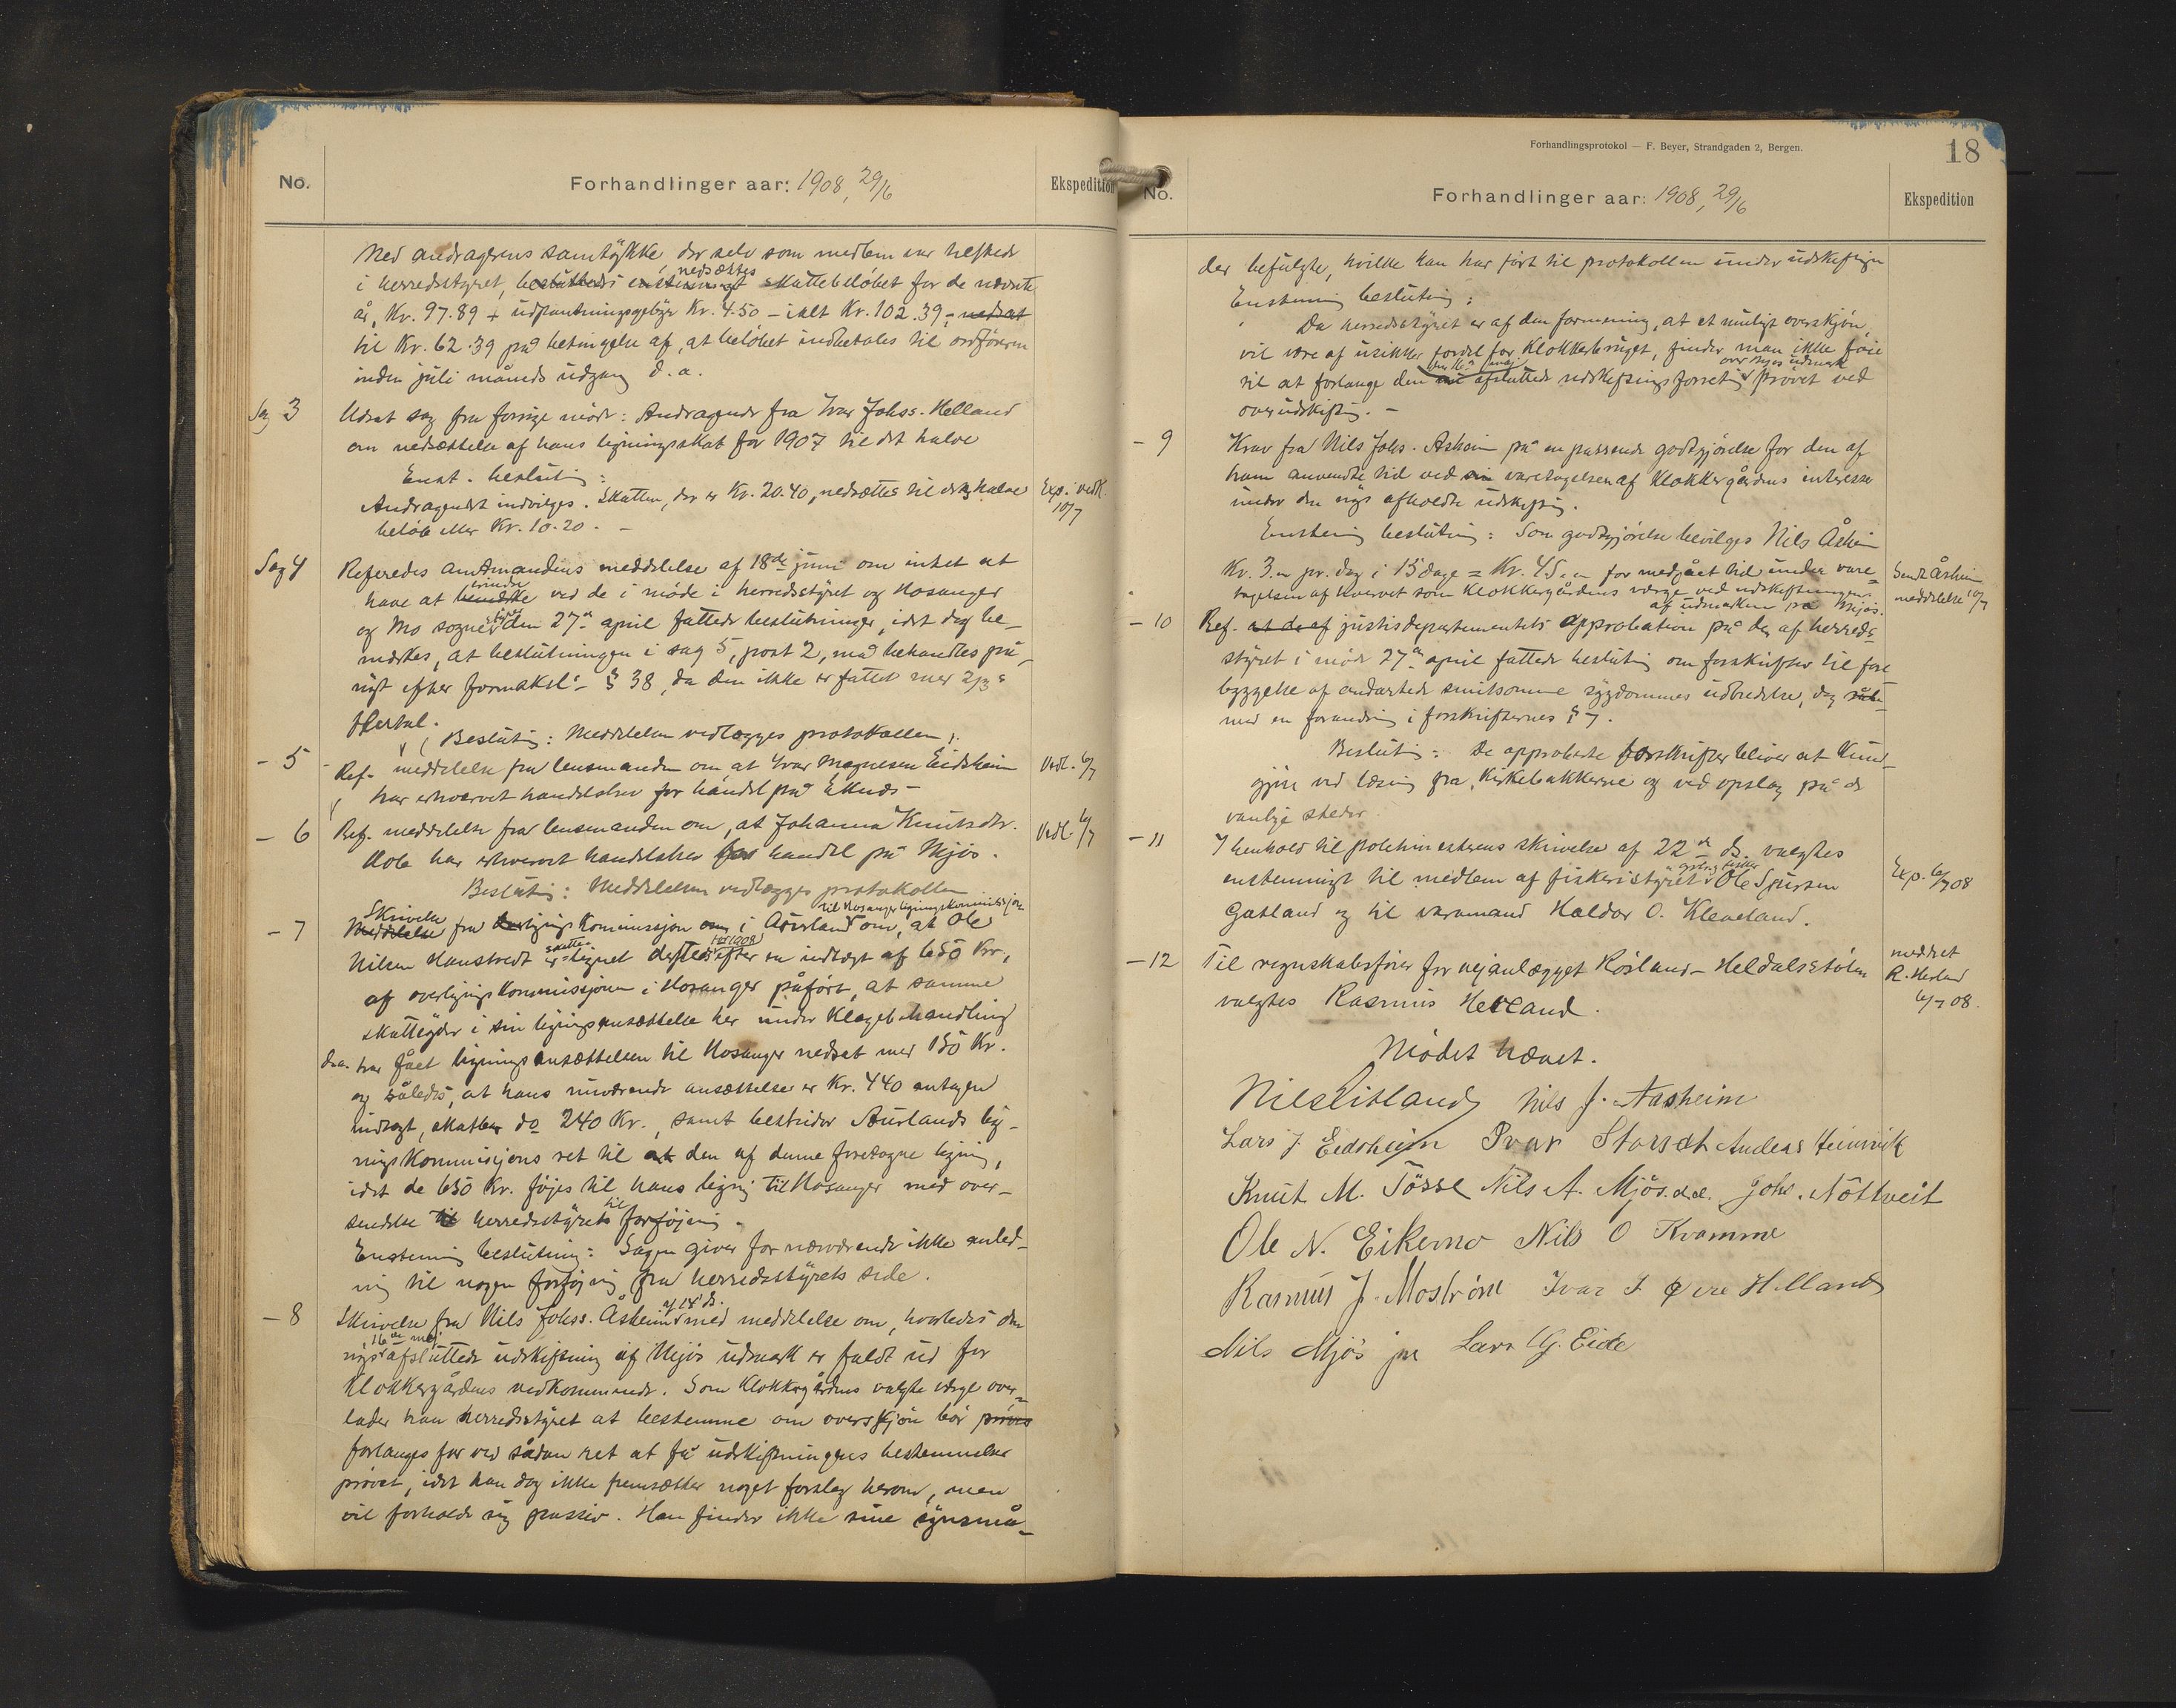 No.
Forhandlinger aar: 1908, 29/6
Ekspedition
Med andragerens samtykke der selv som medlem var tilstede
i herredsstyret, besluttedes enstemmigt nedsættes skattebeløbet for de nævnte
år, Kr. 97.89 + udpantningsgebyr Kr. 4.50 – ialt Kr. 102.39, nedsat
til Kr. 62.39 på betingelse af, at beløbet indbetales til ordføreren
inden juli måneds udgang d. a.
Sag 3
Udsat sag fra forrige møde: Andragende fra Ivar Johss. Helland
om nedsættelse af hans ligningsskat for 1907 til det halve
Enst. beslutning:
Andragendet indvilges. Skatten, der er Kr. 20.40, nedsættes til det halve
beløb eller Kr. 10.20. –
Exp. vedk. 10/7
Sag 4
Referedes amtmandens meddelelse af 18de juni om intet at
have at bemærke erindre ved de i møde i herredsstyret og Hosanger
og Mo sognestyre den 27de april fattede beslutninger, idet dog be-
mærkes, at beslutningen i sag 5, post 2, må behandles på
nyt efter formdksl. § 38, da den ikke er fattet mer 2/3s
flertal.
Beslutning: Meddelelsen vedlægges protokollen.
– 5
Ref. meddelelse fra lensmanden om at Ivar Magnesen Eidsheim
har erhvervet handelsbrev for handel på Eknes –
Vedl. 6/7
– 6
Ref. meddelelse fra lensmanden om, at Johanna Knutsdtr.
Kole har erhvervet handelsbrev for handel på Mjøs.
Beslutning: Meddelelsen vedlægges protokollen
Vedl. 6/7
– 7
Skrivelse Meddelelse fra ligningskommissjon i Aurland til Hosanger ligningskommissjon om, at Ole
Nilsen Hanstvedt er skattelignet dersteds for 1908 efter en indtægt af 650 Kr.,
af overligningskommissjonen i Hosanger påført, at samme
skatteyder i sin ligningsansættelse her under klagebehandling
har fået ligningsansættelsen til Hosanger nedsat mer 150 Kr.
og således, at hans nuværende ansættelse er Kr. 440 antagen
indtægt, skatbar do 240 Kr., samt bestrider Aurlands lig-
ningskommisjons ret til at den af denne foretagne ligning,
idet de 650 Kr. føjes til hans ligning til Hosanger med over-
sendelse til herredsstyrets til forføjning.
Enstemmig beslutning: Sagen giver for nærværende ikke anled-
ning til nogen forføjning fra herredsstyrets side.
– 8
Skrivelse fra Nils Johss. Åsheim af 18' ds. med meddelelse om, hvorledes den
nys 16de maj afsluttede udskiftning af Mjøs udmark er faldt ud for
Klokkergårdens vedkommende. Som Klokkergårdens valgte værge over-
lader han herredsstyret at bestemme om overskjøn bør prøves
forlanges for ved sådan ret at få udskiftningens bestemmelser
prøvet, idet han dog ikke fremsætter noget forslag herom, men
vil forholde sig passiv. Han finder ikke sine synsmå-
Forhandlingsprotokol — F. Beyer, Strandgaden 2, Bergen.
18
No.
Forhandlinger aar: 1908, 29/6
Ekspedition
der befulgte, hvilke han har ført til protokollen under udskiftningen
Enstemmig beslutning:
Da herredsstyret er af den formening, at et muligt overskjøn,
vil være af usikker fordel for Klokkerbruget, finder man ikke føie
til at forlange den den 16de maj afsluttede udskiftningsforretning over Mjøs udmark prøvet ved
overudskiftning. –
– 9
Krav fra Nils Johs. Åsheim på en passende godtgjørelse for den af
ham anvendte tid ved varetagelsen af Klokkergårdens interesser
under den nys afholdte udskiftning.
Enstemmig beslutning: Som godtgjørelse bevilges Nils Åsheim
Kr. 3.00 pr. dag i 15 dage = Kr. 45.00 for medgået tid under vare-
tagelsen af hvervet som Klokkergårdens værge ved udskiftningen
af udmarken på Mjøs.
Sendt Åsheim
meddelelse 10/7
– 10
Ref. justisdepartementets approbation på den af herreds-
styret i møde 27de april fattede beslutning om forskrifter til fore-
byggelse af ondartede smitsomme sygdommes udbredelse, dog
med en forandring i forskrifternes § 7.
Beslutning: De approberte forskrifter bliver at kund-
gjøre ved læsning fra kirkebakkerne og ved opslag på de
vanlige steder.
– 11
I henhold til politimesterens skrivelse af 22de ds. valgtes
enstemmigt til medlem af fiskeristyret Ole Sjursen
Gatland og til varamand Haldor O. Kleveland.
Exp. 6/7 08
– 12
Til regnskabsfører for vejanlægget Røsland – Heldalsstølen
valgtes Rasmus Helland.
meddelt
R. Helland
6/7 08.
Mødet hævet.
Nils Eitland Nils J. Aasheim
Lars J Eidsheim Ivar Storset Anders Heimvik
Knut M. Tøsse Nils A. Mjøs. d.e. Johs. Nøttveit
Ole N. Eikemo Nils O Kvamme
Rasmus J. Moström Ivar I Øvre Helland
Nils Mjøs jn Lars G. Eide